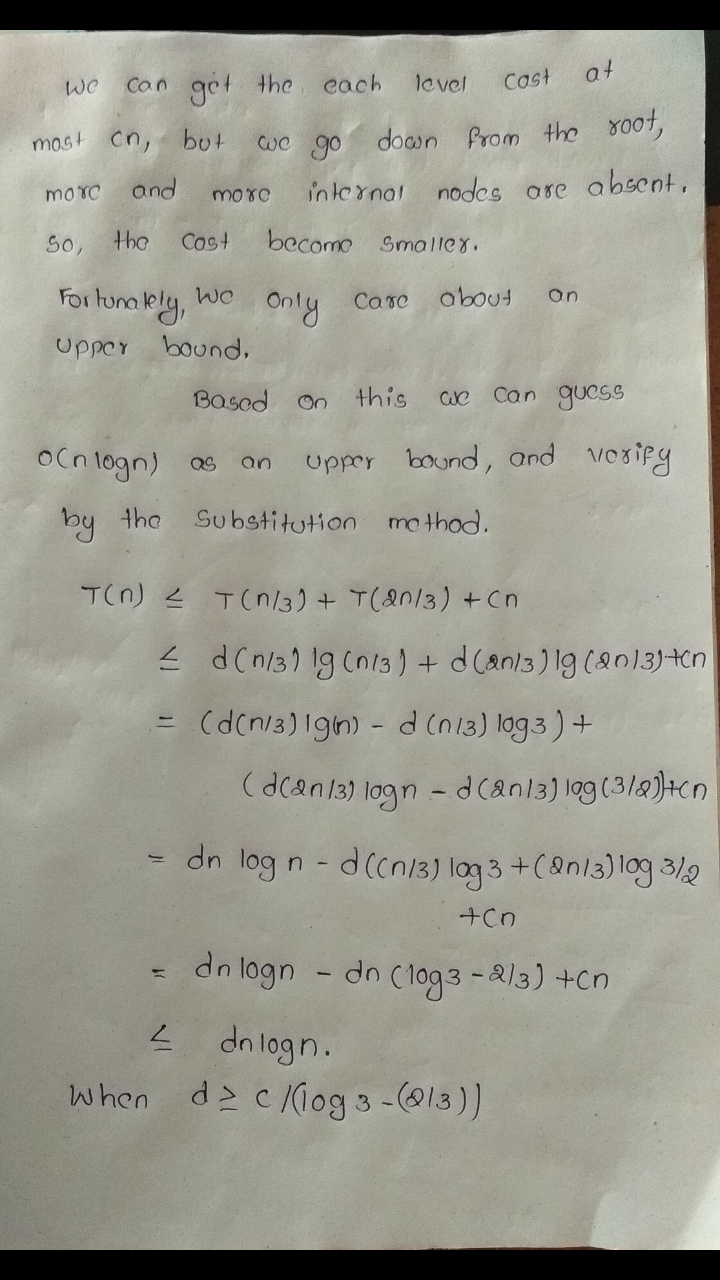 We can get the each level cost at
most cn, but we go down from the root,
more and more internal nodes are absent.
So, the cost become smaller.
Fortunately, We only care about an
Upper bound.
Based on this we can guess
O(n logn) as an upper bound, and verify
by the Substitution method.
T(n) ≤ T(n/3) + T(2n/3) + Cn
≤ d(n/3) lg(n/3) + d(2n/3) lg(2n/3)+Cn
= (d(n/3) lg(n) - d(n/3) log3) +
(d(2n/3) logn - d(2n/3) log(3/2))+Cn
= dn log n - d((n/3) log3 + (2n/3) log 3/2
+Cn
= dn logn - dn (log3 - 2/3) + Cn
≤ dnlogn.
When d ≥ C/(log 3 - (2/3))